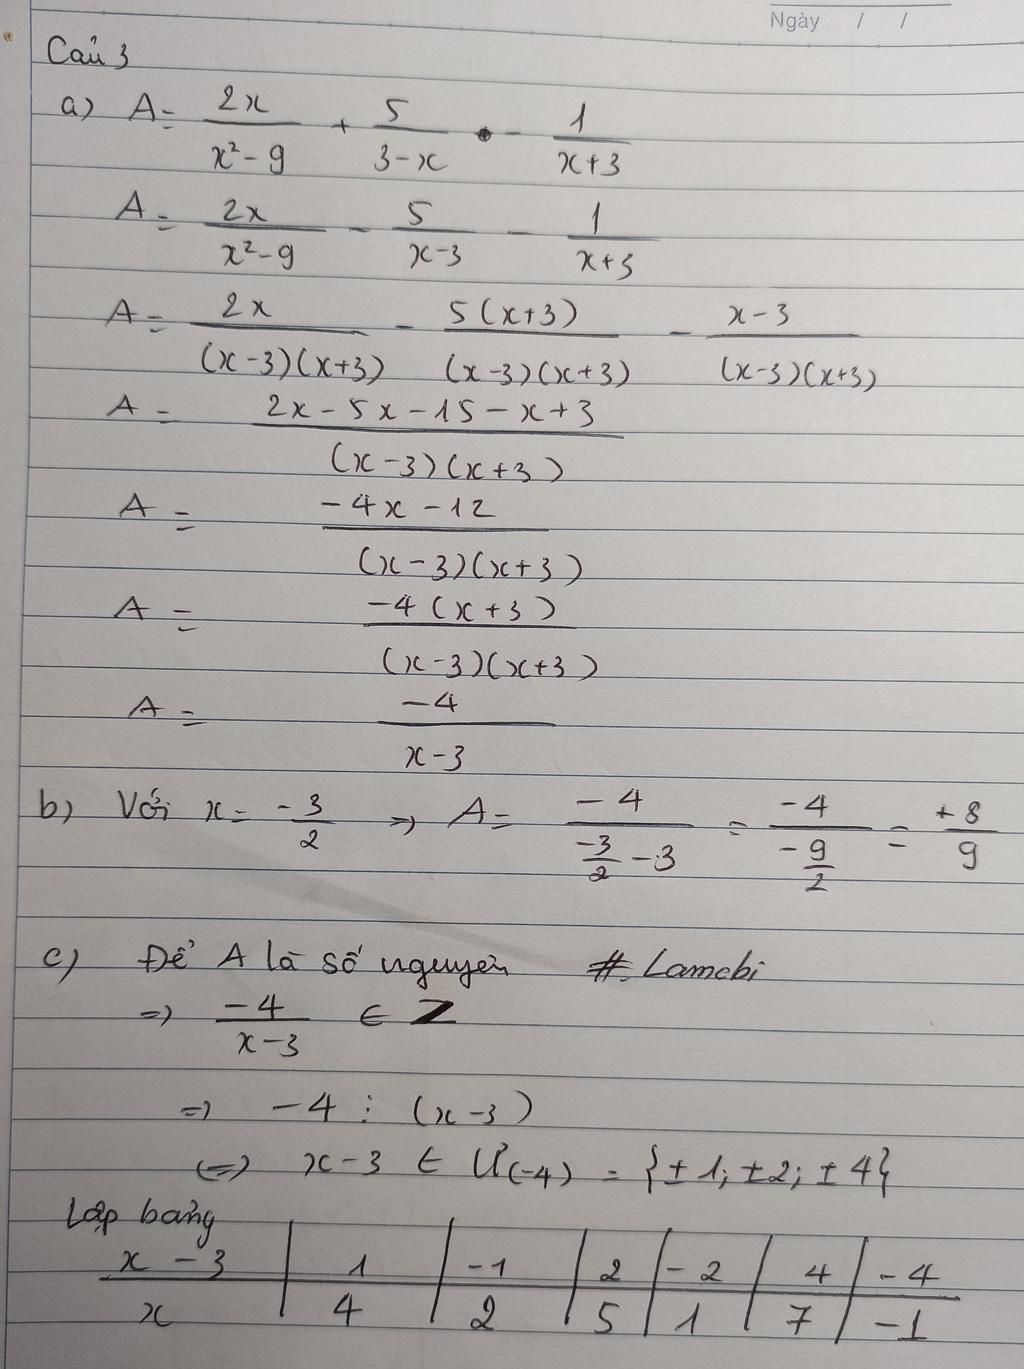 Ngày / /
Câu 3
a) A = 2x/(x² - 9) + 5/(3 - x) - 1/(x + 3)
A = 2x/(x² - 9) - 5/(x - 3) - 1/(x + 3)
A = 2x/((x - 3)(x + 3)) - 5(x + 3)/((x - 3)(x + 3)) - (x - 3)/((x - 3)(x + 3))
A = (2x - 5x - 15 - x + 3)/((x - 3)(x + 3))
A = (-4x - 12)/((x - 3)(x + 3))
A = -4(x + 3)/((x - 3)(x + 3))
A = -4/(x - 3)
b) Với x = -3/2 => A = -4/(-3/2 - 3) = -4/(-9/2) = +8/9
c) Để A là số nguyên #Lamebi
=> -4/(x - 3) ∈ Z
=> -4 ⋮ (x - 3)
<=> x - 3 ∈ Ư(-4) = {±1; ±2; ±4}
Lập bảng
x - 3 | 1 | -1 | 2 | -2 | 4 | -4
x | 4 | 2 | 5 | 1 | 7 | -1